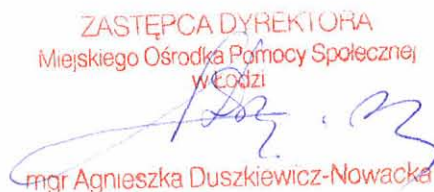 ZASTĘPCA DYREKTORA
Miejskiego Ośrodka Pomocy Społecznej
w Łodzi
mgr Agnieszka Duszkiewicz-Nowacka